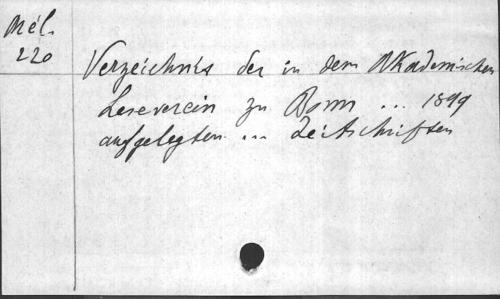 Mél.
220
Verzeichnis der in dem Akademischen
Leseverein zu Bonn ... 1899
aufgelegten ... Zeitschriften